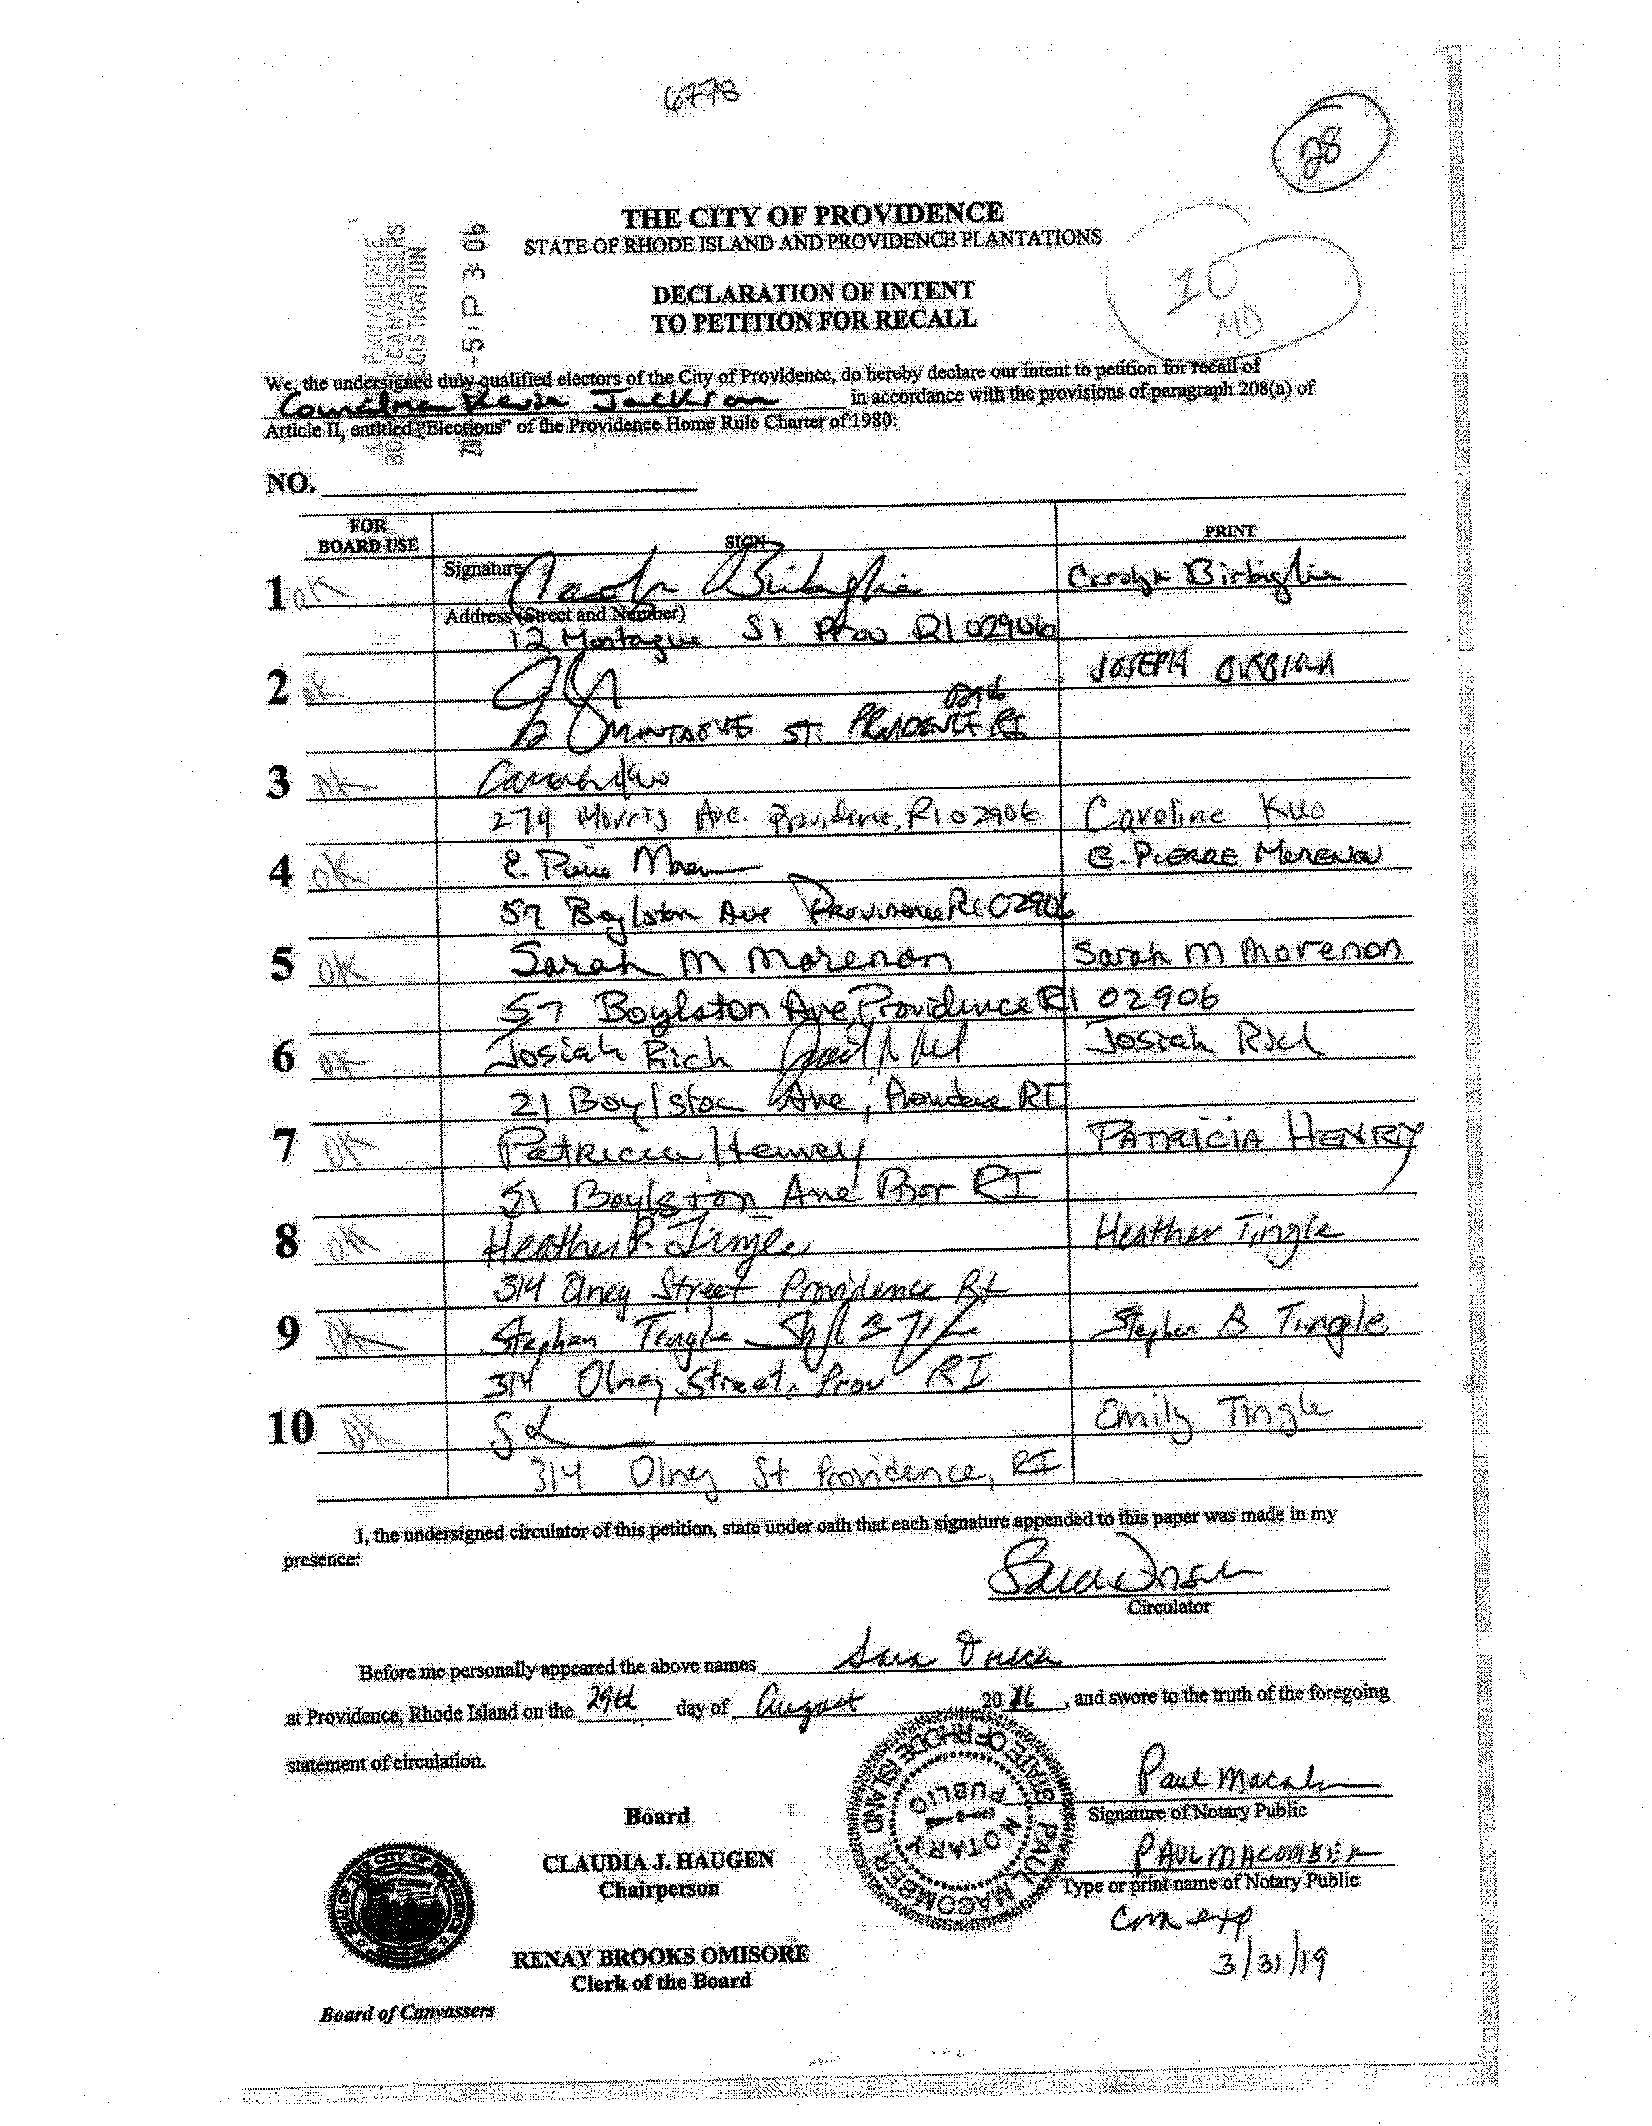 6778
28
THE CITY OF PROVIDENCE
STATE OF RHODE ISLAND AND PROVIDENCE PLANTATIONS
10
MD
DECLARATION OF INTENT
TO PETITION FOR RECALL
-5 P 3 06
We, the undersigned duly qualified electors of the City of Providence, do hereby declare our intent to petition for recall of
Kevin Jackson in accordance with the provisions of paragraph 208(a) of
Article II, entitled "Elections" of the Providence Home Rule Charter of 1980:
NO.
FOR BOARD USE SIGN PRINT
1 OK Signature Birbiglia Carolyn Birbiglia
Address (Street and Number)
12 Montague St Prov RI 02906
2 OK JOSEPH
12 MONTAGUE ST. PROVIDENCE RI
3 OK
279 Morris Ave. Providence, RI 02906 Caroline Kuo
4 OK E. Pierre E. PIERRE MORENON
57 Boylston Ave Providence RI 02906
5 OK Sarah M Morenon Sarah M Morenon
57 Boylston Ave Providence RI 02906
6 OK Josiah Rich Josiah Rich
21 Boylston Ave, Providence RI
7 OK Patricia Henry PATRICIA HENRY
51 Boylston Ave Prov RI
8 OK Heather R. Tingle Heather Tingle
314 Olney Street Providence RI
9 OK Stephen Tingle Stephen B Tingle
314 Olney Street, Prov RI
10 OK Emily Tingle
314 Olney St Providence, RI
I, the undersigned circulator of this petition, state under oath that each signature appended to this paper was made in my
presence:
Circulator
Before me personally appeared the above names Sara
at Providence, Rhode Island on the 29th day of August 2016, and swore to the truth of the foregoing
statement of circulation.
STATE OF RHODE ISLAND
PAUL MACOMBER
NOTARY PUBLIC
Paul
Signature of Notary Public
PAUL MACOMBER
Type or print name of Notary Public
Com exp
3/31/19
Board
CLAUDIA J. HAUGEN
Chairperson
RENAY BROOKS OMISORE
Clerk of the Board
Board of Canvassers